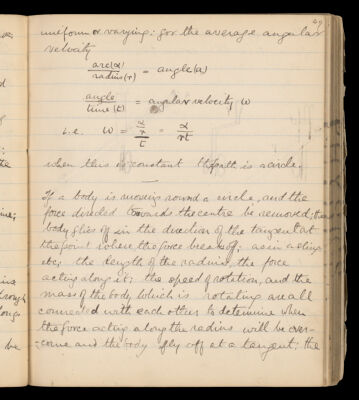 49
uniform or varying: for the average angular
velocity
arc(α)/radius(r) = angle(a)
angle/time(t) = angular velocity ω
i.e. ω = α/r/t = α/rt
when this is constant the path is a circle.
If a body is moving round a circle, and the
force directed towards the centre be removed; the
body flies off in the direction of the tangent at
the point where the force breaks off; as in a sling
etc; the length of the radius, the force
acting along it; the speed of rotation, and the
mass of the body which is rotating are all
connected with each other & to determine when
the force acting along the radius will be over-
-come and the body fly off at a tangent; the